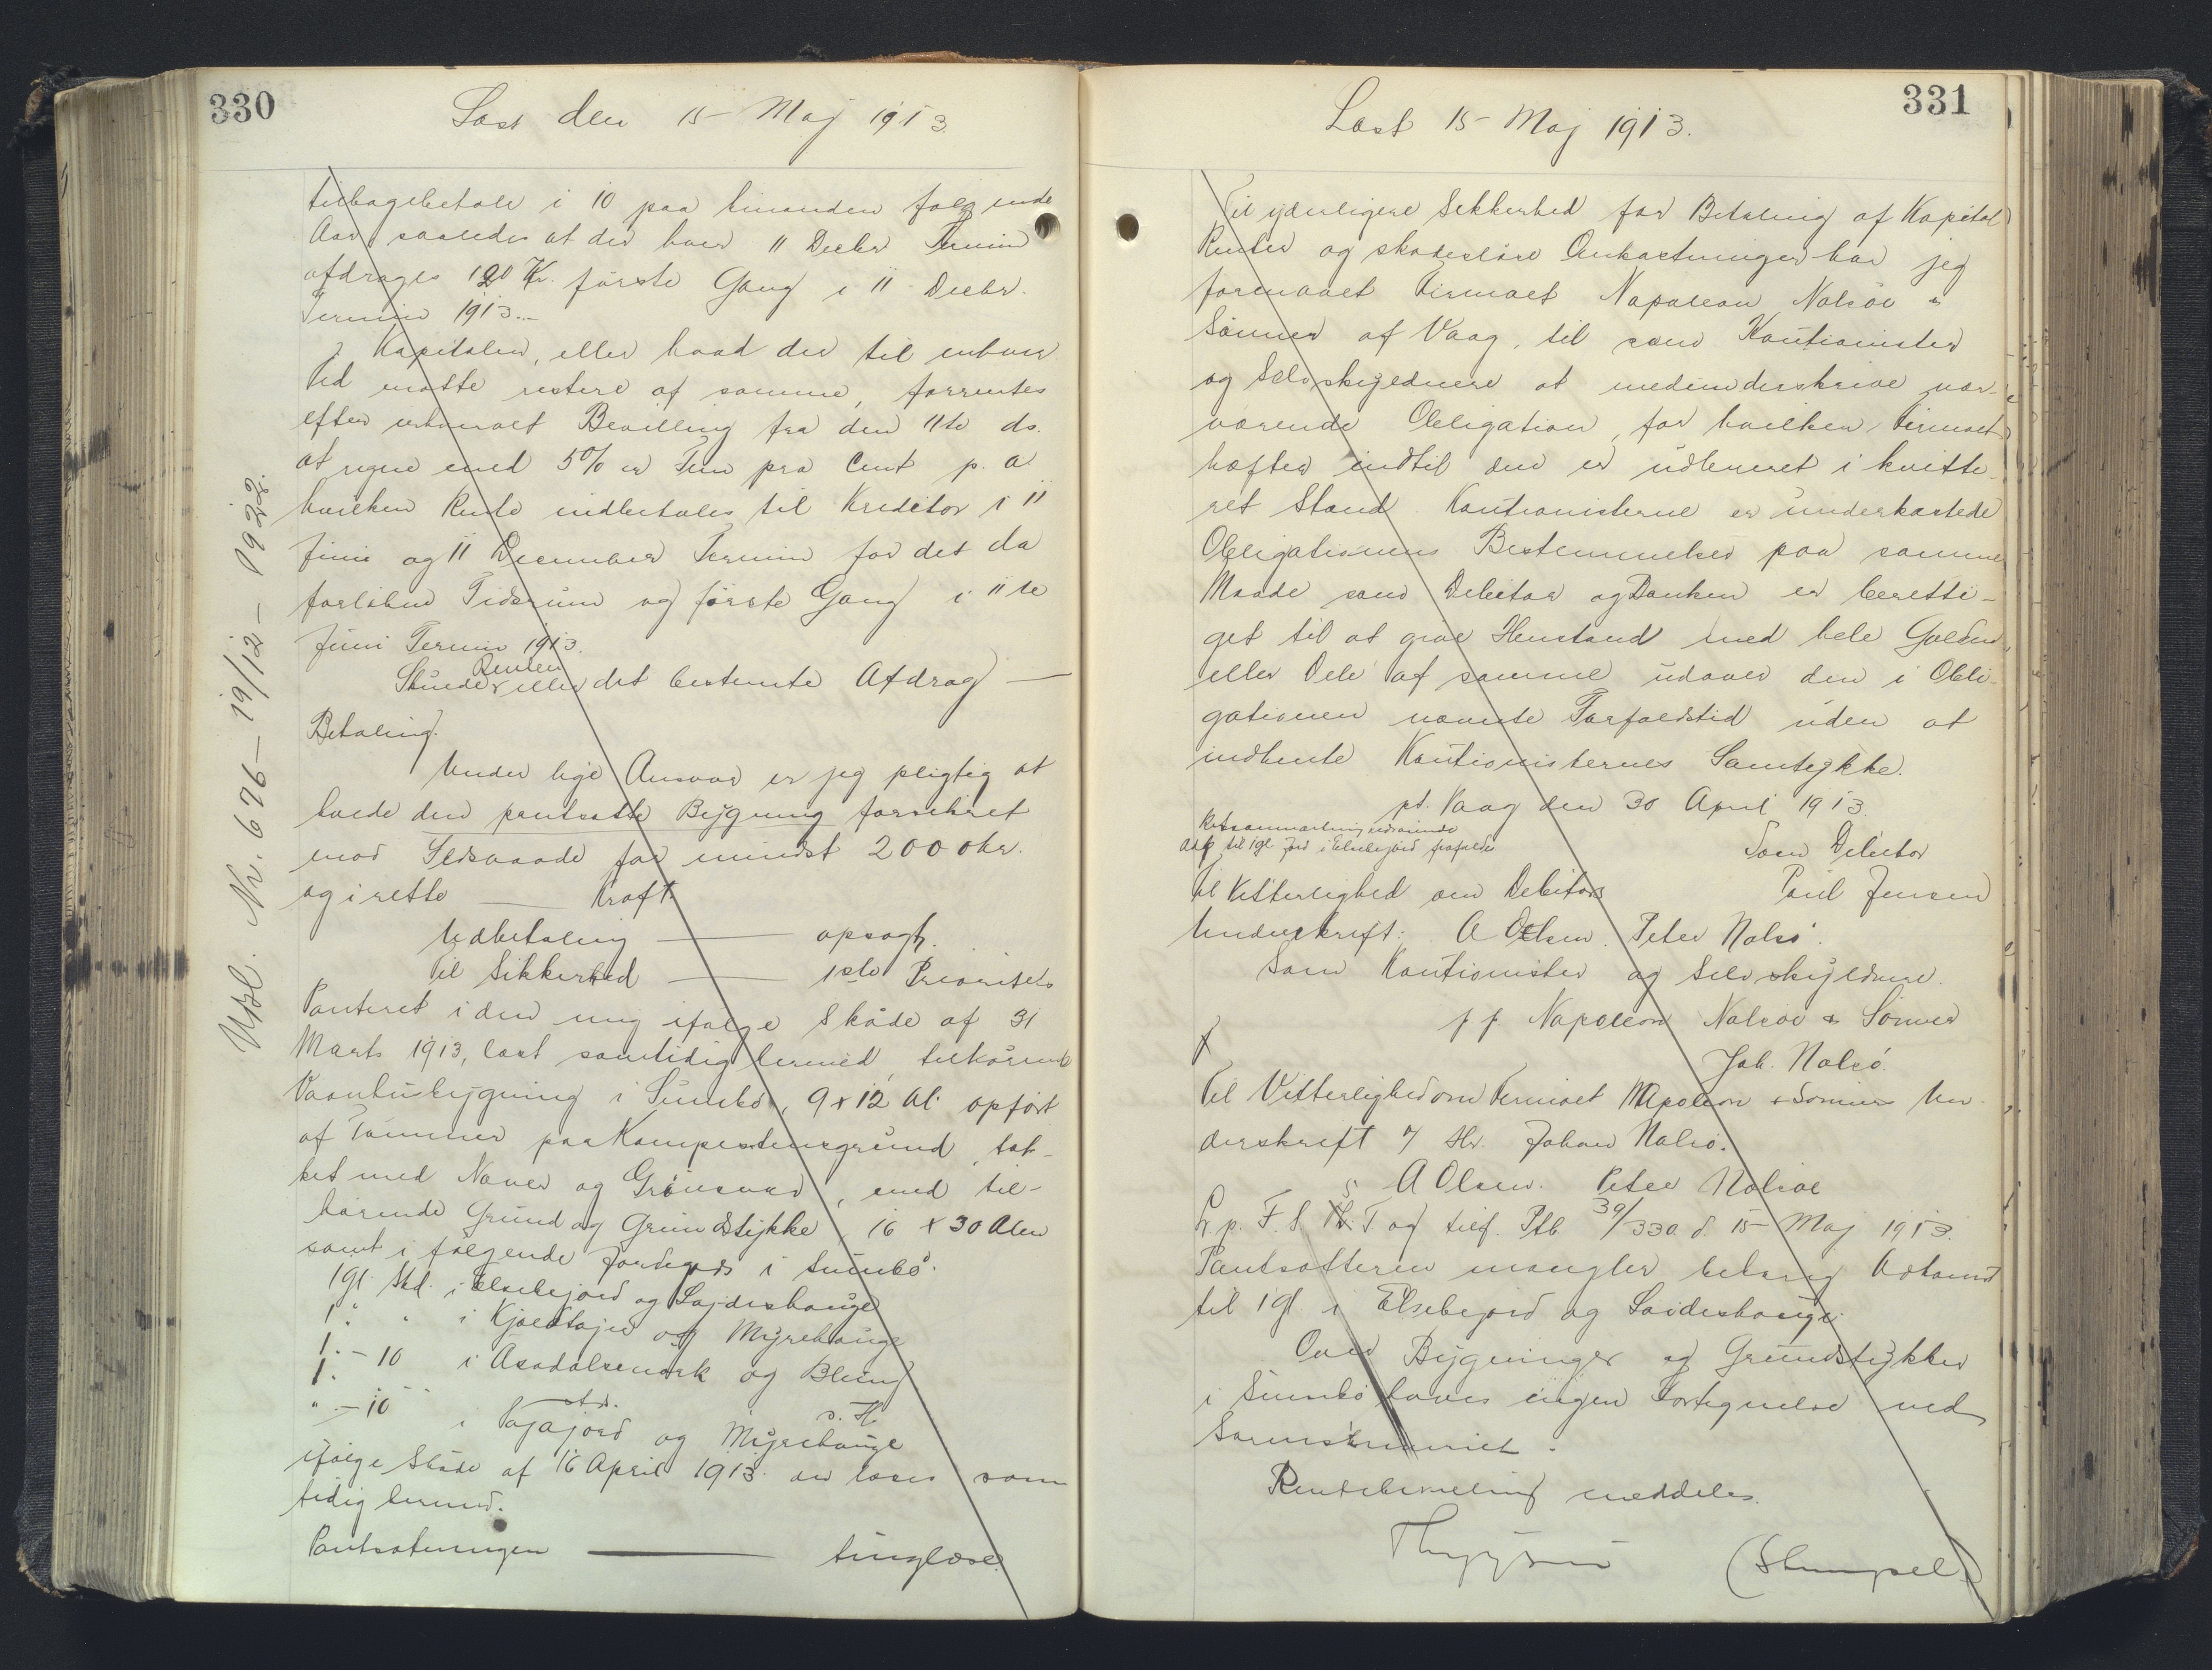 330
Læst den 15 - Maj 1913.
tilbagebetale i 10 paa hinanden følgende
Aar, saaledes at der hver 11 Decbr Termin
afdrages 120 Kr. første Gang i 11 Decbr.
Termin 1913.-
Kapitalen, eller hvad der til enhver
Tid maatte restere af samme, forrentes
efter erhvervet Bevilling fra den 11te ds.
at regne med 5% er Fem pro Cent p. a.
hvilken Rente indbetales til Kreditor i 11
Juni og 11 December Termin for det da
forløbne Tidsrum og første Gang i 11te
Juni Termin 1913.
Renten
Skulde eller det bestemte Afdrag —
Betaling.
Under lige Ansvar er jeg pligtig at
holde den pantsatte Bygning forsikret
mod Ildsvaade for mindst 2000 kr.
og i rette — Kraft.
Udbetaling — opsagt.
Til Sikkerhed — 1ste Prioritets
Panteret i den mig ifølge Skøde af 31
Marts 1913, læst samtidig hermed, tilhørende
Vaanhusbygning i Sumbø, 9 x 12 Al. opført
af Tømmer paa Kampestensgrund, tæk-
ket med Næver og Grønsvær, med til-
hørende Grund og Grundstykke, 16 x 30 Alen
samt i følgende Jordegods i Sumbø.
1 gl. Skd. i Elsebejord og Lajdeshauge
1 " " i Kjældtajer og Myrehauge
1. - 10 i Aasdalsmørk og Bleng
1.
" - 10 " i Vajajord og Myrehauge
ifølge Skøde af 16 April 1913 der læses sam
tidig hermed.
Pantsætningen — tinglæses.
Udsl. Nr. 676 - 19/12 - 1922.
331
Læst 15 - Maj 1913.
Til yderligere Sikkerhed for Betaling af Kapital
Renter og skadesløse Omkostninger har jeg
formaaet Firmaet Napoleon Nolsøe &
Sønner af Vaag, til som Kautionister
og Selvskyldnere at medunderskrive nær-
værende Obligation, for hvilken Firmaet
hæfter indtil den er udleveret i kvitte-
ret Stand. Kautionisterne er underkastede
Obligationens Bestemmelser paa samme
Maade som Debitor og Banken er beretti-
get til at give Henstand med hele Gælden
eller Dele af samme udover den i Obli-
gationen nævnte Forfaldstid uden at
indhente Kautionisternes Samtykke.
pt. Vaag den 30 April 1913.
Retsanmærkning vedrørende
Adk. til 1 gl. Jord i Elsebejord frafaldes
Som Debitor
Til Vitterlighed om Debitors Poul Jensen
Underskrift: A Olsen. Peter Nolsø.
Som Kautionister og Selvskyldnere.
p p. Napoleon Nolsøe & Sønner
Joh. Nolsø.
Til Vitterlighed om Firmaet Napoleon & Sønners Un-
derskrift v/ Hr. Johan Nolsø.
A Olsen. Peter Nolsøe
L. p. F. S. T. og tilf. Ptb. 39/330 d. 15 - Maj 1913.
Pantsætteren mangler behørig Adkomst
til 1 gl. i Elsebejord og Lajdeshauge.
Over Bygninger og Grundstykker
i Sumbø haves ingen Fortegnelse ved
Sorenskriveriet.
Rentebevilling meddeles.
(Stempel)